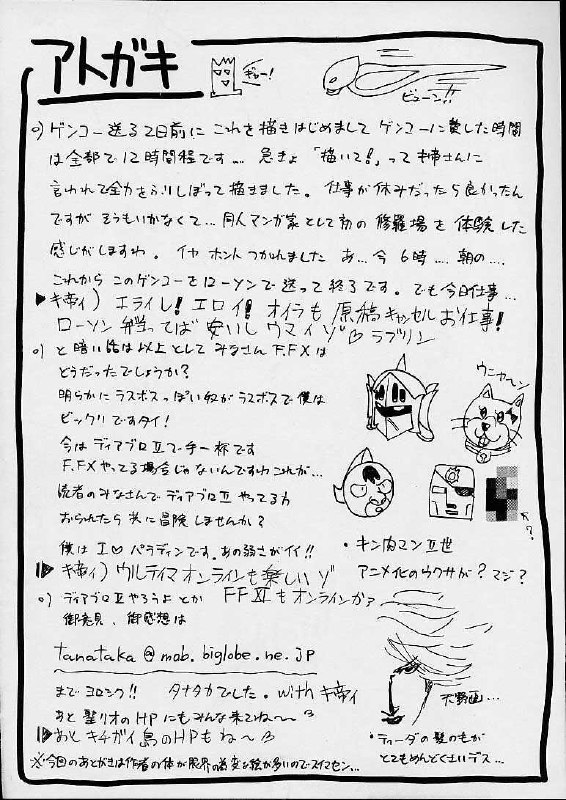 アトガキ
ギュー!
ビューン!!
○) ゲンコー送る2日前に これを描きはじめまして ゲンコーに費した時間
は全部で12時間程です… 急きょ「描いて!」って姉さんに
言われて全力をふりしぼって描きました。仕事が休みだったら良かったん
ですが そうもいかなくて… 同人マンガ家として初の 修羅場を 体験した
感じがしますわ。 イヤ ホント つかれました あ… 今6時… 朝の…
これから このゲンコーをローソンで送って終了です。でも今日仕事…
エライし! エロイ! オイラも 原稿キャンセル お仕事!
ローソン弁当ってば 安いし ウマイゾ ラブリン
○) と暗い話は以上として みなさん F.FXは
どうだったでしょうか?
明らかにラスボスっぽい奴がラスボスで僕は
ビックリですタイ!
今はディアブロⅡで手一杯です
F.FXやってる場合じゃないんですわこれが…
読者のみなさんでディアブロⅡ やってる方
おられたら共に冒険しませんか?
僕はI♡パラディンです。あの弱さがイイ!!
ウルティマオンラインも楽しいゾ
○) ディアブロⅡやろうよ とか FFⅪもオンラインか?
御意見、御感想は
tanataka@mob.biglobe.ne.jp
まで ヨロシク!! タナタカでした。with
あと 聖リオのHPにもみんな来てね〜〜
あと キチガイ島のHPもね〜
※今回のあとがきは作者の体が限界の為変な絵が多いのでスイマセン…
ウニャ〜ン
・キン肉マンⅡ世
アニメ化のウワサが? マジ?
天野画…
・ティーダの髪のもが
とてもめんどくさいデス…